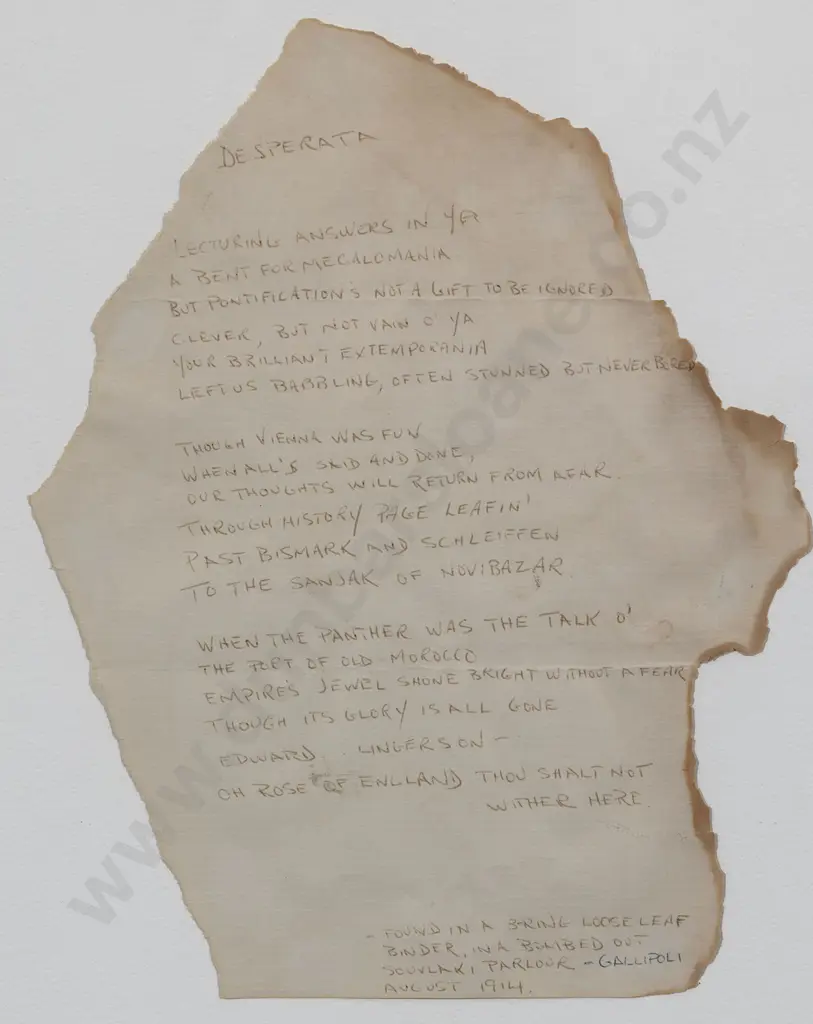 DESPERATA
LECTURING ANSWERS IN YA
A BENT FOR MEGALOMANIA
BUT PONTIFICATION'S NOT A GIFT TO BE IGNORED
CLEVER, BUT NOT VAIN O' YA
YOUR BRILLIANT EXTEMPORANIA
LEFT US BABBLING, OFTEN STUNNED BUT NEVER BORED
THOUGH VIENNA WAS FUN
WHEN ALL'S SAID AND DONE,
OUR THOUGHTS WILL RETURN FROM AFAR.
THROUGH HISTORY PAGE LEAFIN'
PAST BISMARK AND SCHLEIFFEN
TO THE SANJAK OF NOVIBAZAR.
WHEN THE PANTHER WAS THE TALK O'
THE PORT OF OLD MOROCCO
EMPIRE'S JEWEL SHONE BRIGHT WITHOUT A FEAR
THOUGH ITS GLORY IS ALL GONE
EDWARD LINGERS ON -
OH ROSE OF ENGLAND THOU SHALT NOT
WITHER HERE.
- FOUND IN A 3-RING LOOSE LEAF
BINDER, IN A BOMBED OUT
SOUVLAKI PARLOUR - GALLIPOLI
AUGUST 1914.